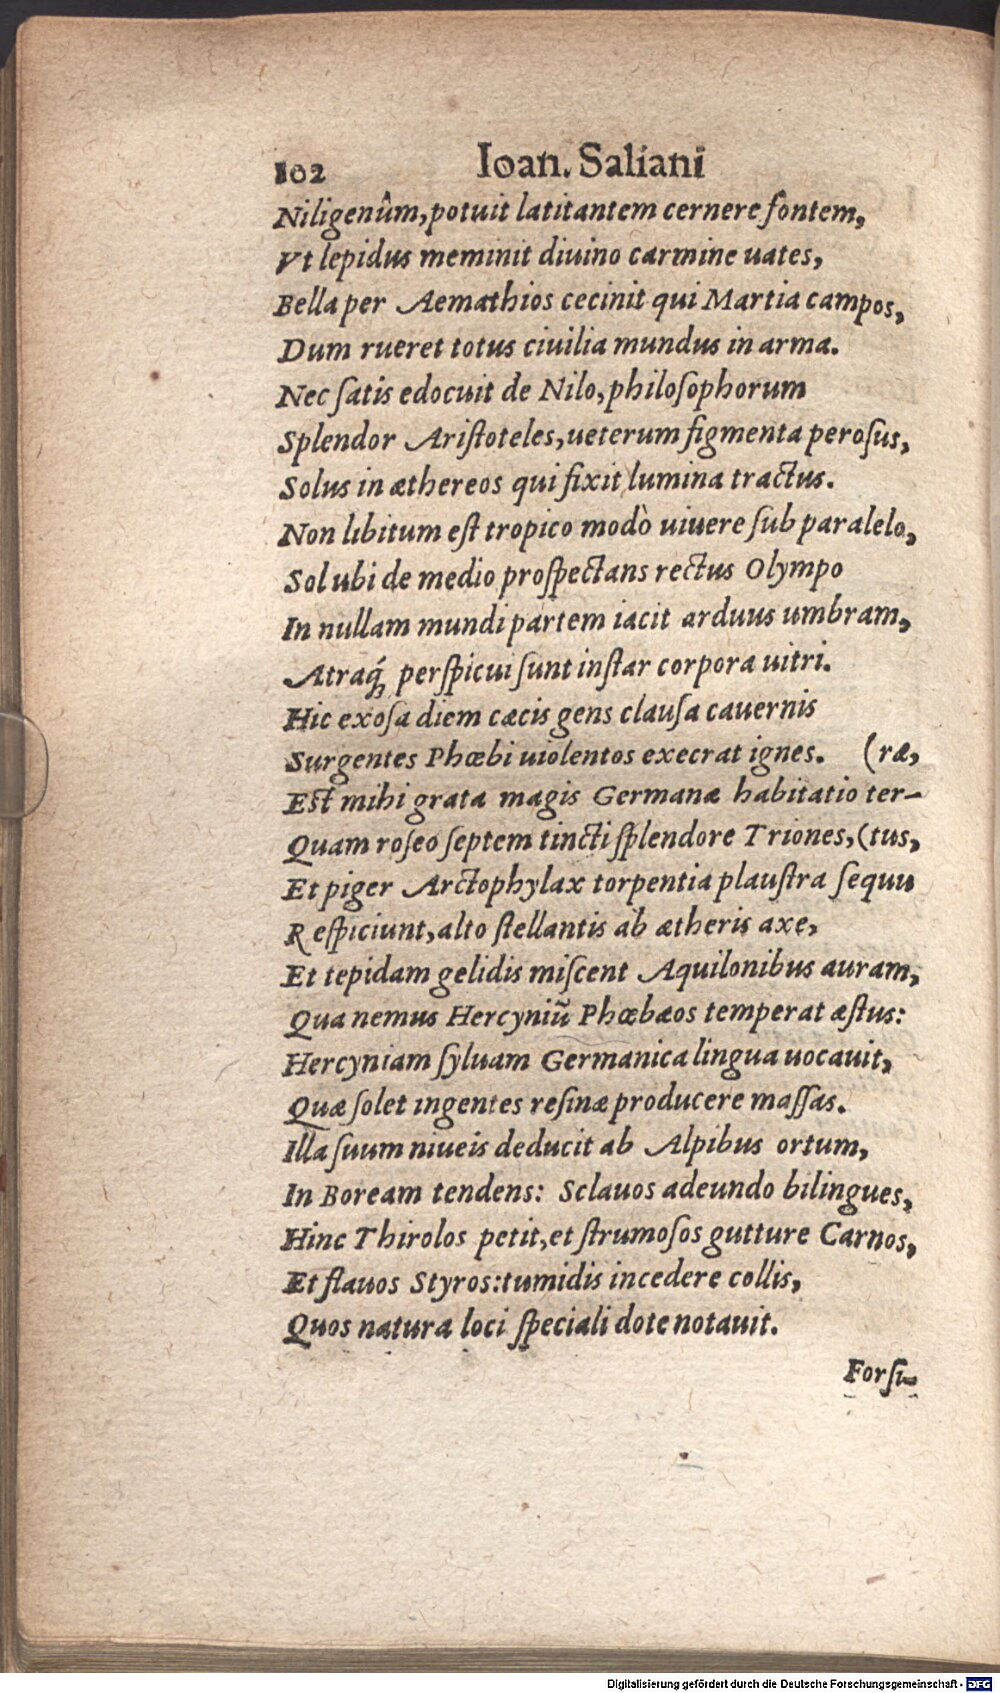 102 Ioan. Saliani
Niligenûm, potuit latitantem cernere fontem,
Vt lepidus meminit diuino carmine uates,
Bella per Aemathios cecinit qui Martia campos,
Dum rueret totus ciuilia mundus in arma.
Nec ſatis edocuit de Nilo, philoſophorum
Splendor Ariſtoteles, ueterum figmenta peroſus,
Solus in æthereos qui fixit lumina tractus.
Non libitum eſt tropico modò uiuere ſub paralelo,
Sol ubi de medio proſpectans rectus Olympo
In nullam mundi partem iacit arduus umbram,
Atraq́; perſpicui ſunt inſtar corpora uitri.
Hic exoſa diem cæcis gens clauſa cauernis
Surgentes Phœbi uiolentos execrat ignes. (ræ,
Est mihi grata magis Germanæ habitatio ter-
Quam roſeo ſeptem tincti ſplendore Triones, (tus,
Et piger Arctophylax torpentia plauſtra ſequu
Reſpiciunt, alto ſtellantis ab ætheris axe,
Et tepidam gelidis miſcent Aquilonibus auram,
Qua nemus Hercyniũ Phœbæos temperat æſtus:
Hercyniam ſyluam Germanica lingua uocauit,
Quæ ſolet ingentes reſinæ producere maſſas.
Illa ſuum niueis deducit ab Alpibus ortum,
In Boream tendens: Sclauos adeundo bilingues,
Hinc Thirolos petit, et ſtrumoſos gutture Carnos,
Et flauos Styros: tumidis incedere collis,
Quos natura loci ſpeciali dote notauit.
Forſi-
Digitalisierung gefördert durch die Deutsche Forschungsgemeinschaft - DFG